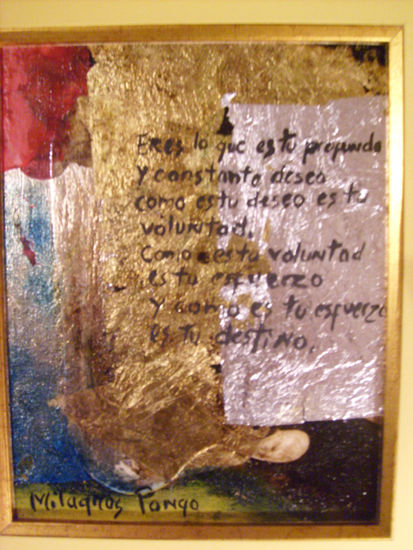 Eres lo que es tu profundo
y constante deseo
como es tu deseo es tu
voluntad.
Como es tu voluntad
es tu esfuerzo
y como es tu esfuerzo
es tu destino.
Milagros Pango